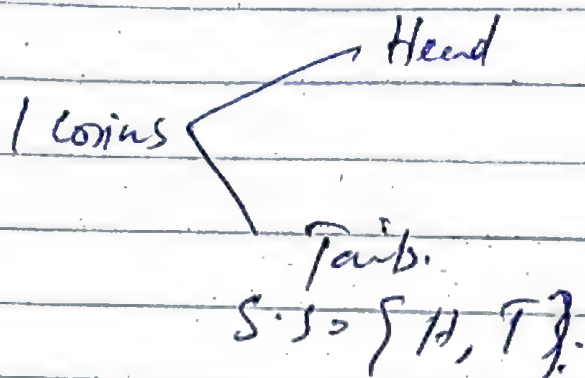 Head
1 Coins
Tails.
S.S = { H, T }.